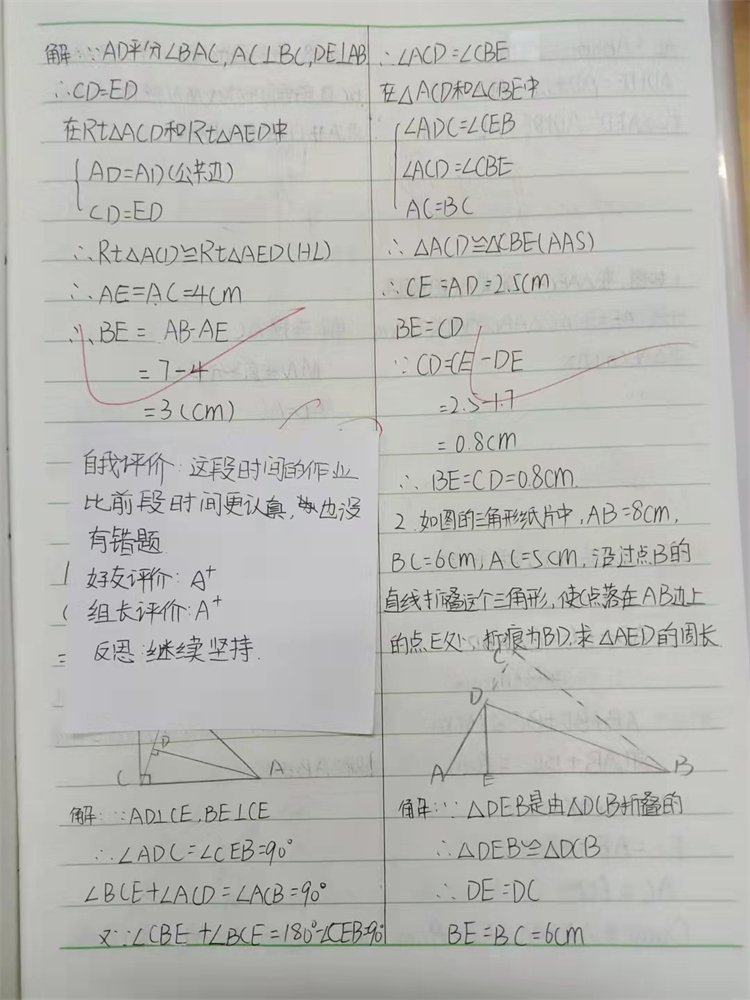 解:∵AD平分∠BAC,AC⊥BC,DE⊥AB
∴CD=ED
在Rt△ACD和Rt△AED中
AD=AD(公共边)
CD=ED
∴Rt△ACD≌Rt△AED(HL)
∴AE=AC=4cm
∴BE=AB-AE
=7-4
=3(cm)
自我评价:这段时间的作业
比前段时间更认真,也没
有错题
好友评价:A⁺
组长评价:A⁺
反思:继续坚持.
C D A
解:∵AD⊥CE,BE⊥CE
∴∠ADC=∠CEB=90°
∠BCE+∠ACD=∠ACB=90°
又∵∠CBE+∠BCE=180°-∠CEB=90°
∴∠ACD=∠CBE
在△ACD和△CBE中
∠ADC=∠CEB
∠ACD=∠CBE
AC=BC
∴△ACD≌△CBE(AAS)
∴CE=AD=2.5cm
BE=CD
∵CD=CE-DE
=2.5-1.7
=0.8cm
∴BE=CD=0.8cm.
2.如图的三角形纸片中,AB=8cm,
BC=6cm,AC=5cm,沿过点B的
直线折叠这个三角形,使C点落在AB边上
的点E处,折痕为BD.求△AED的周长
C
D
A E B
解:∵△DEB是由△DCB折叠的
∴△DEB≌△DCB
∴DE=DC
BE=BC=6cm